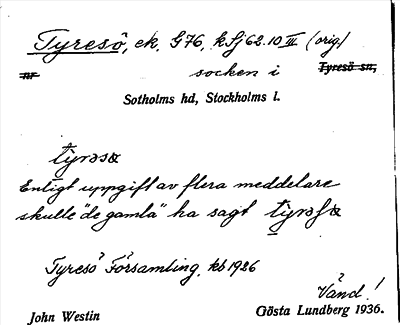 Tyresö, ek. G76, kSj 62.10 III (orig)
nr socken i Tyresö sn,
Sotholms hd, Stockholms l.
tyrəsœ
Enligt uppgift av flera meddelare
skulle "de gamla" ha sagt
Tyresö Församling, kb 1926
Vänd!
John Westin Gösta Lundberg 1936.